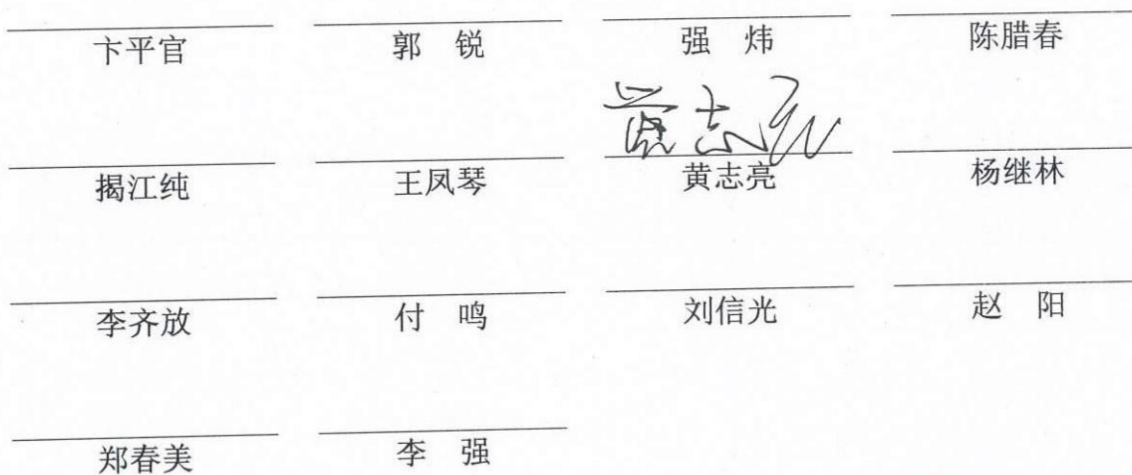 卞平官 郭 锐 强 炜 陈腊春
黄志亮
揭江纯 王凤琴 黄志亮 杨继林
李齐放 付 鸣 刘信光 赵 阳
郑春美 李 强